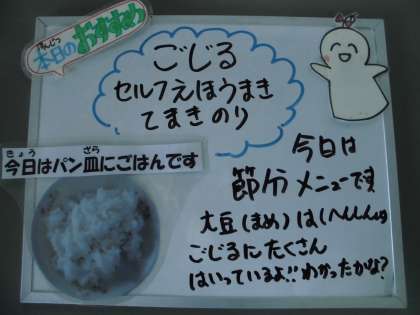 ほんじつ
本日のおすすめ
ごじる
セルフえほうまき
てまきのり
きょう さら
今日はパン皿にごはんです
今日は
節分メニューです
大豆(まめ)は
ごじるにたくさん
はいっているよ!!わかったかな?